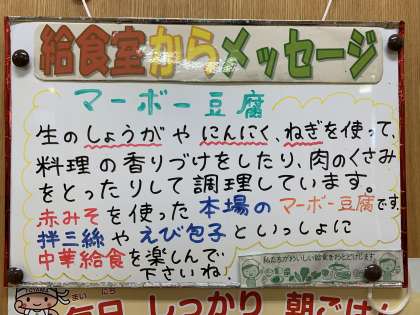 給食室からメッセージ
マーボー豆腐
生のしょうがやにんにく、ねぎを使って、
料理の香りづけをしたり、肉のくさみ
をとったりして調理しています。
赤みそを使った本場のマーボー豆腐です。
拌三絲やえび包子といっしょに
中華給食を楽しんで
下さいね
私たちがおいしい給食をおとどけします
まい にち
毎日 しっかり 朝ごはん